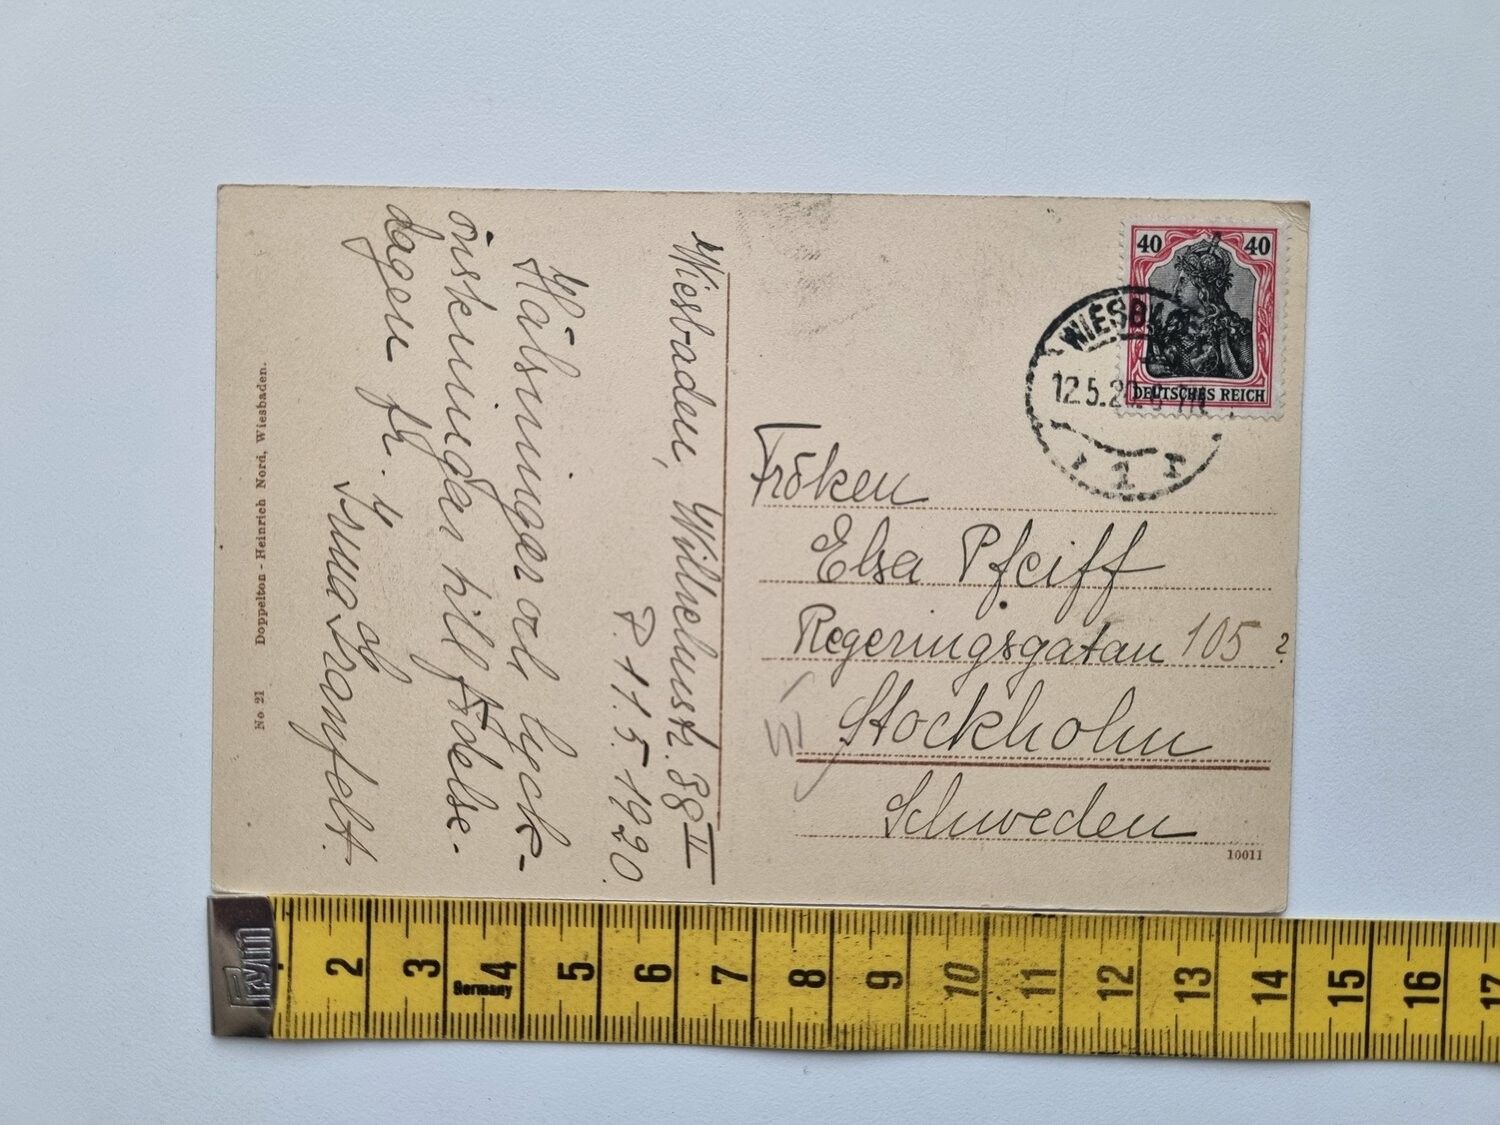 Wiesbaden, Wilhelmstr. 38 II
P. 11.5.1920.
Hälsningar och lyck-
önskningar till födelse-
dagen fr.
Irma
No 21 Doppelton - Heinrich Nord, Wiesbaden.
40 40
DEUTSCHES REICH
WIESB
12.5.20
1
Fröken
Elsa Pfeiff
Regeringsgatan 105 ?
Stockholm
Schweden
10011
Prym
2 3 4 5 6 7 8 9 10 11 12 13 14 15 16 17
Germany